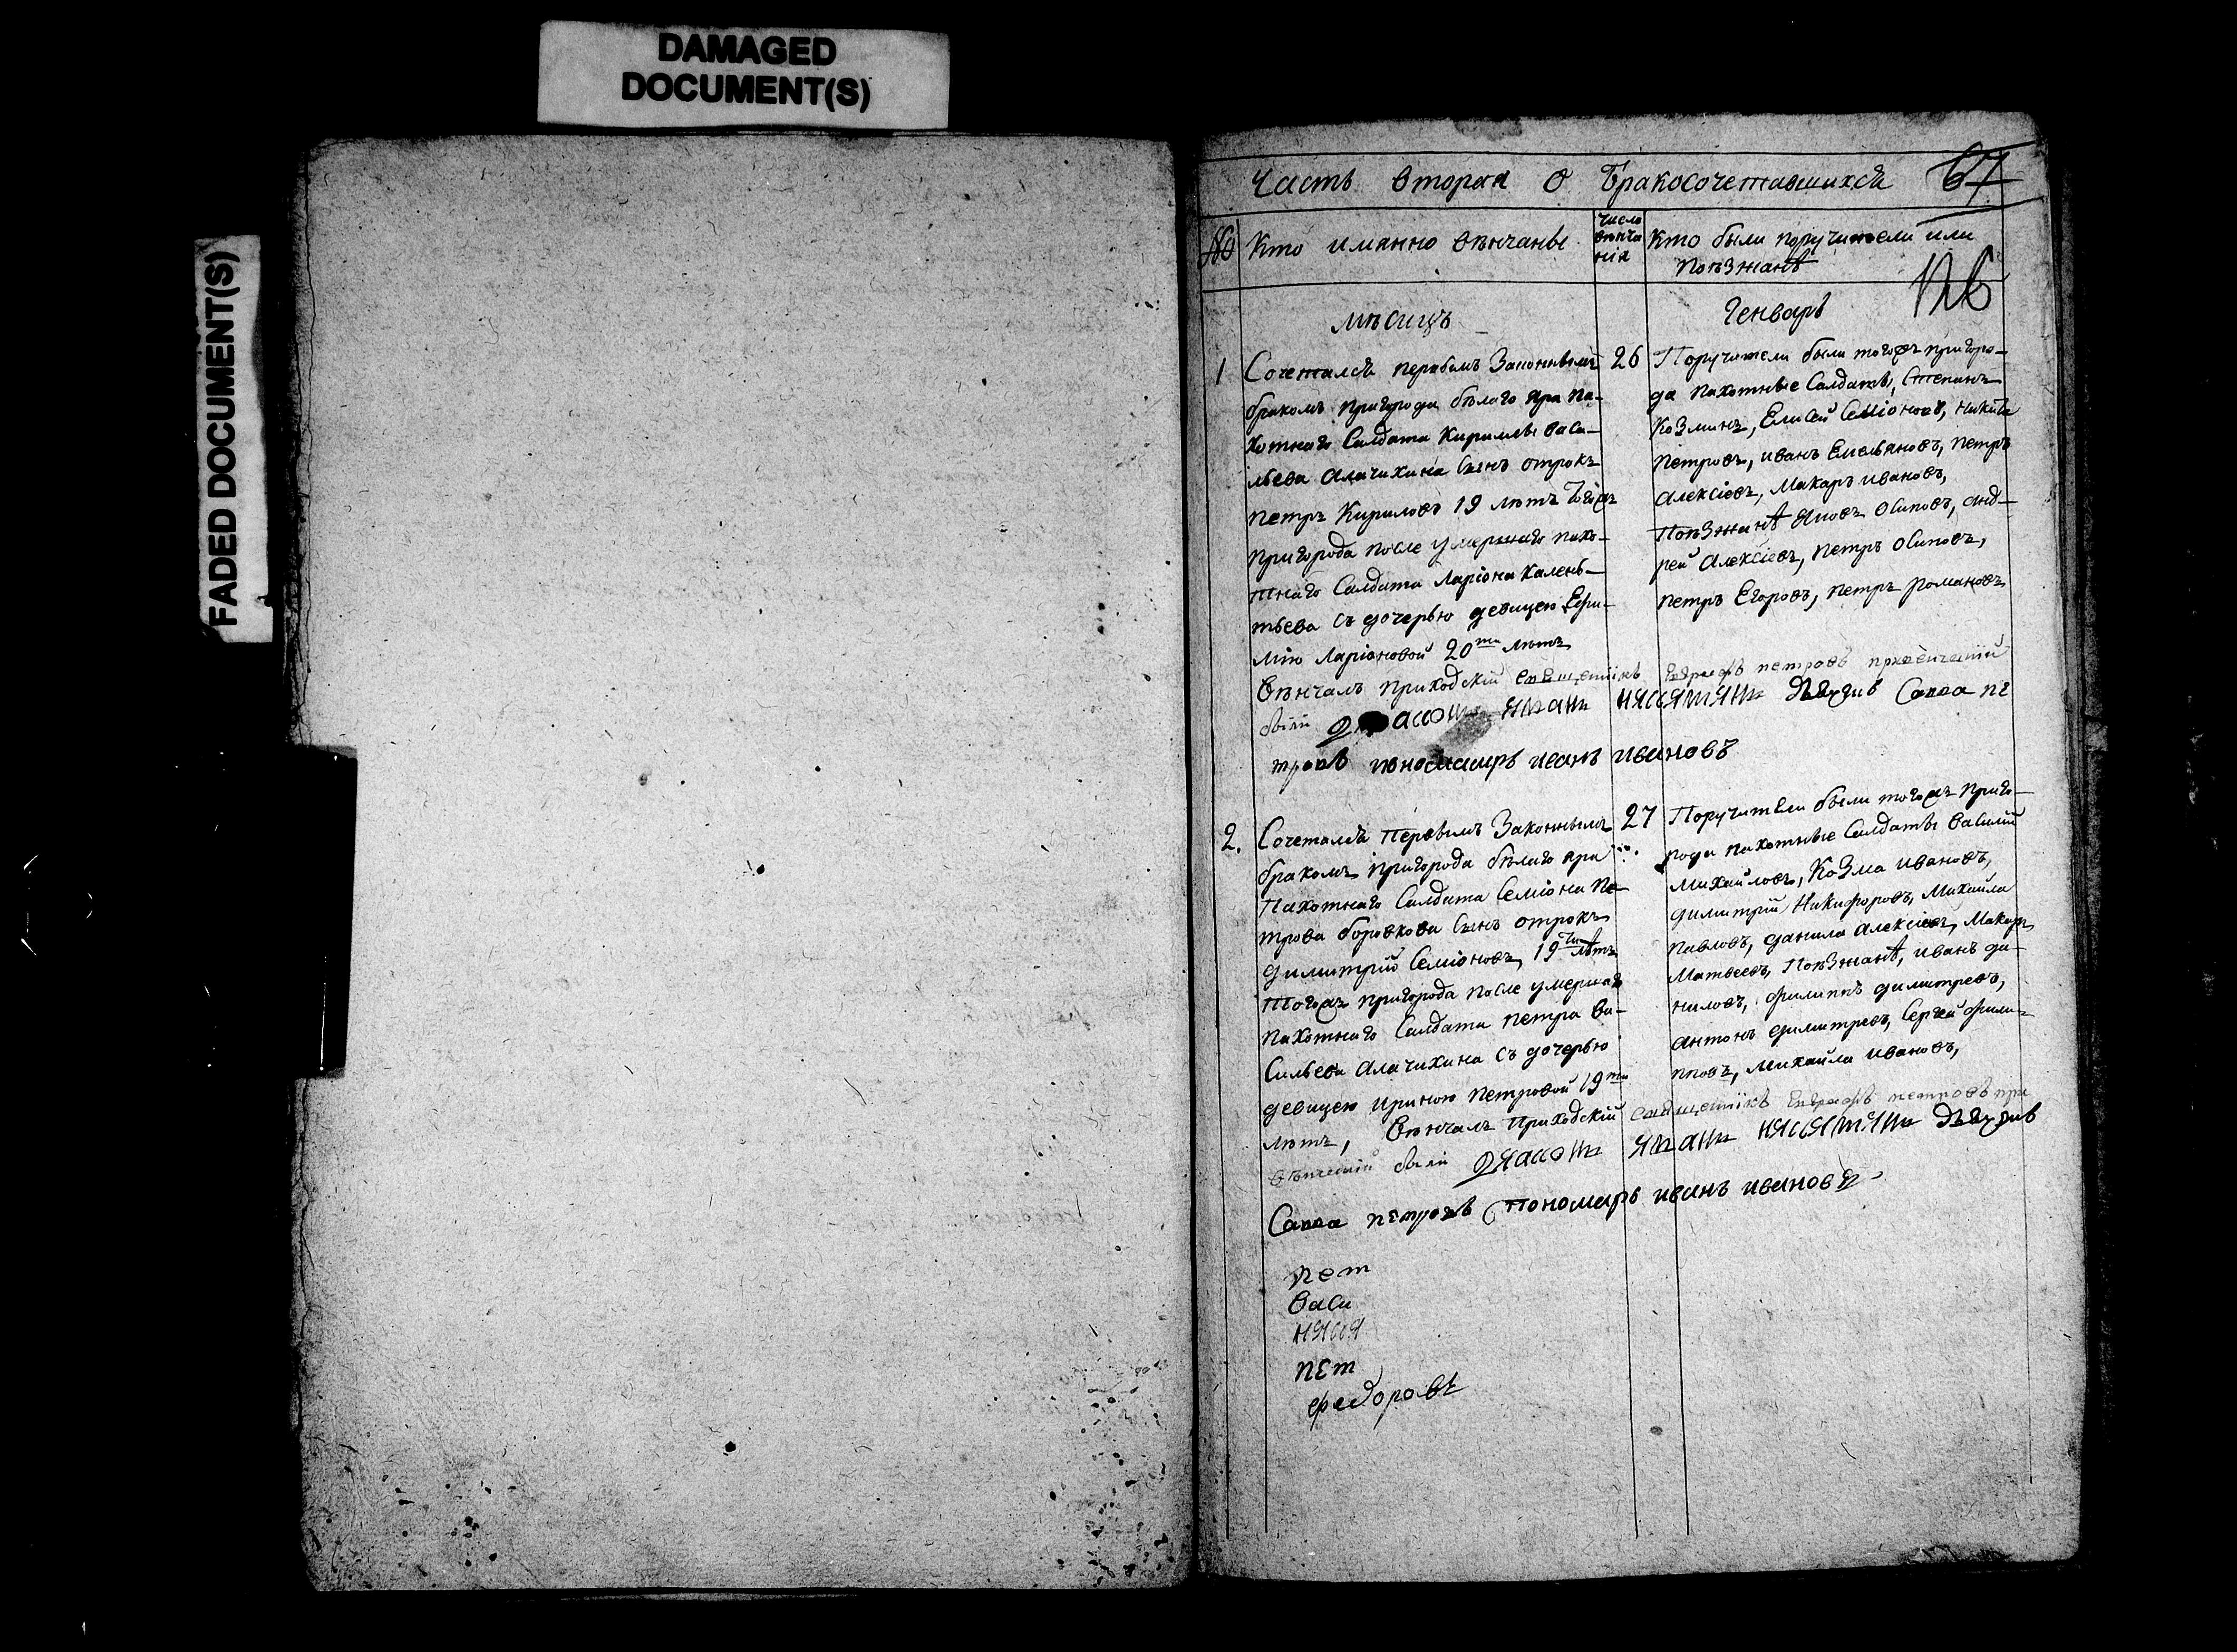 DAMAGED
DOCUMENT(S)
FADED DOCUMENT(S)
Часть вторая о бракосочетавшихся 67
№ Кто имянно вѣнчаны число вѣнчания Кто были поручители или поѣзжанѣ
мѣсицъ Генварь
1 Сочетался первымъ Законнымъ
бракомъ пригорода бѣлаго яра па-
хотнаго Салдата Кирилы васи-
льева Алачихина Сынъ отрокъ
петръ Кириловъ 19 лѣтъ тогожъ
пригорода после умершаго пахо-
тнаго Салдата Ларіона Калень-
тьева съ дочерью девицею Ефи-
мію Ларіоновой 20ти лѣтъ
26 Поручители были тогожъ пригоро-
да пахотные Салдаты, Степанъ
Козминъ, Елисей Семіоновъ, Никита
Петровъ, иванъ Емельяновъ, петръ
Алексіевъ, Макаръ ивановъ,
Поѣзжанѣ Яковъ Осиповъ, анд-
рей Алексіевъ, петръ Осиповъ,
петръ Егоровъ, петръ романовъ
Вѣнчалъ приходскій священікъ петровъ
были Савва пе
тровъ пономарь иванъ ивановъ
2. Сочетался первымъ Законнымъ
бракомъ пригорода бѣлаго яра
Пахотнаго Салдата Семіона Пе-
трова боровкова Сынъ отрокъ
Димитрий Семіоновъ, 19ти лѣтъ
Тогожъ пригорода после умершаго
пахотнаго Салдата петра Ва-
Сильева Алачихина съ дочерью
девицею Ириною петровой 19ти
лѣтъ, Вѣнчалъ приходскій священікъ петровъ при
27 Поручители были тогожъ приго-
рода пахотные Салдаты василий
михайловъ, Козма ивановъ,
Димитрий Никифоровъ, Михаила
павловъ, данила алексіевъ, Макаръ
Матвеевъ, Поѣзжанѣ, иванъ да-
ниловъ, филиппъ димитревъ,
антонъ димитревъ, Сергей фили-
пповъ, михаила ивановъ,
были
Савва петровъ пономарь иванъ ивановъ
пет
Васи
пет
федоровъ